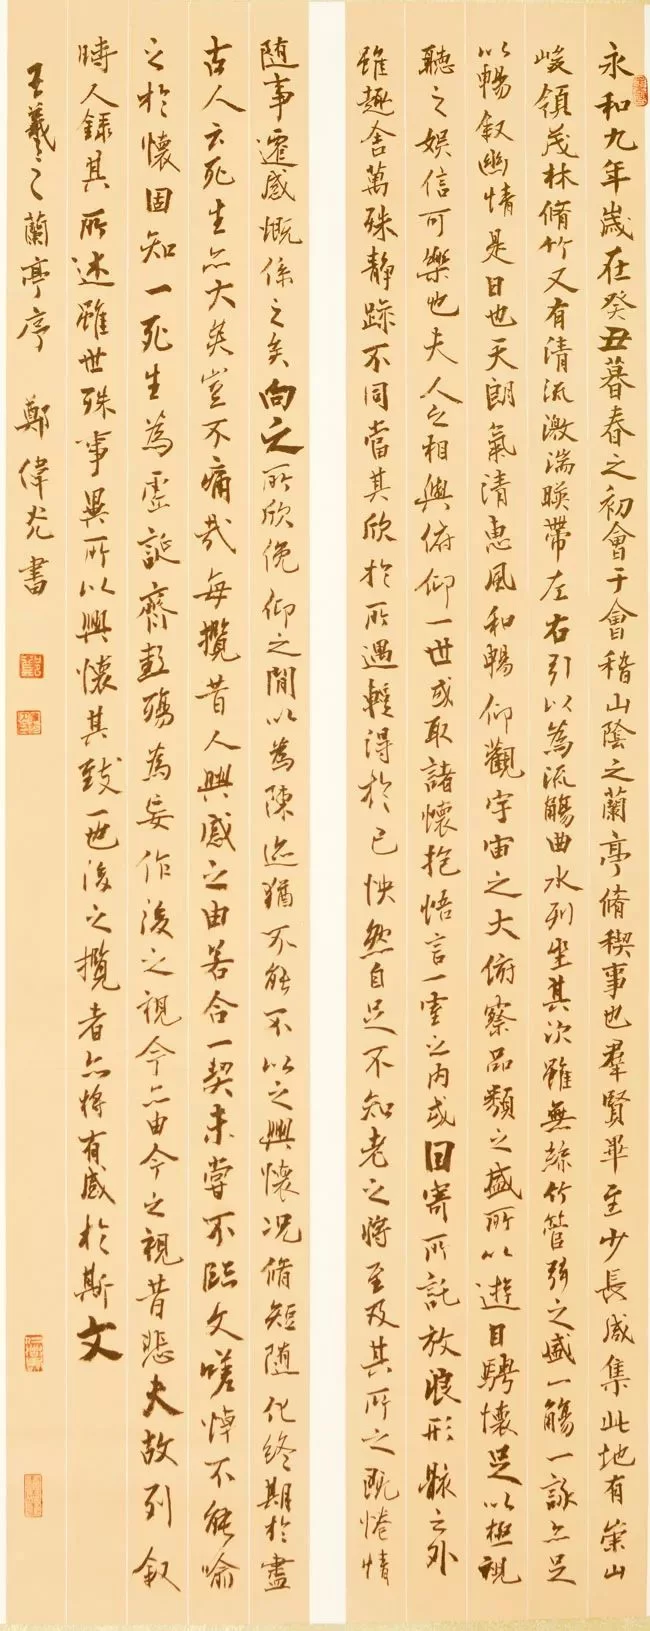 永和九年歲在癸丑暮春之初會于會稽山陰之蘭亭脩稧事也羣賢畢至少長咸集此地有崇山
峻領茂林脩竹又有清流激湍暎帶左右引以為流觴曲水列坐其次雖無絲竹管弦之盛一觴一詠亦足
以暢敘幽情是日也天朗氣清惠風和暢仰觀宇宙之大俯察品類之盛所以遊目騁懷足以極視
聽之娛信可樂也夫人之相與俯仰一世或取諸懷抱悟言一室之內或因寄所託放浪形骸之外
雖趣舍萬殊靜躁不同當其欣於所遇得於己怏然自足不知老之將至及其所之既惓情
随事遷感慨係之矣向之所欣俛仰之間以為陳迹猶不能不以之興懷況脩短随化終期於盡
古人云死生亦大矣豈不痛哉每攬昔人興感之由若合一契未嘗不臨文嗟悼不能喻
之於懷固知一死生為虛誕齊彭殤為妄作後之視今亦由今之視昔悲夫故列敘
時人錄其所述雖世殊事異所以興懷其致一也後之攬者亦將有感於斯文
王羲之蘭亭序 鄭偉光書